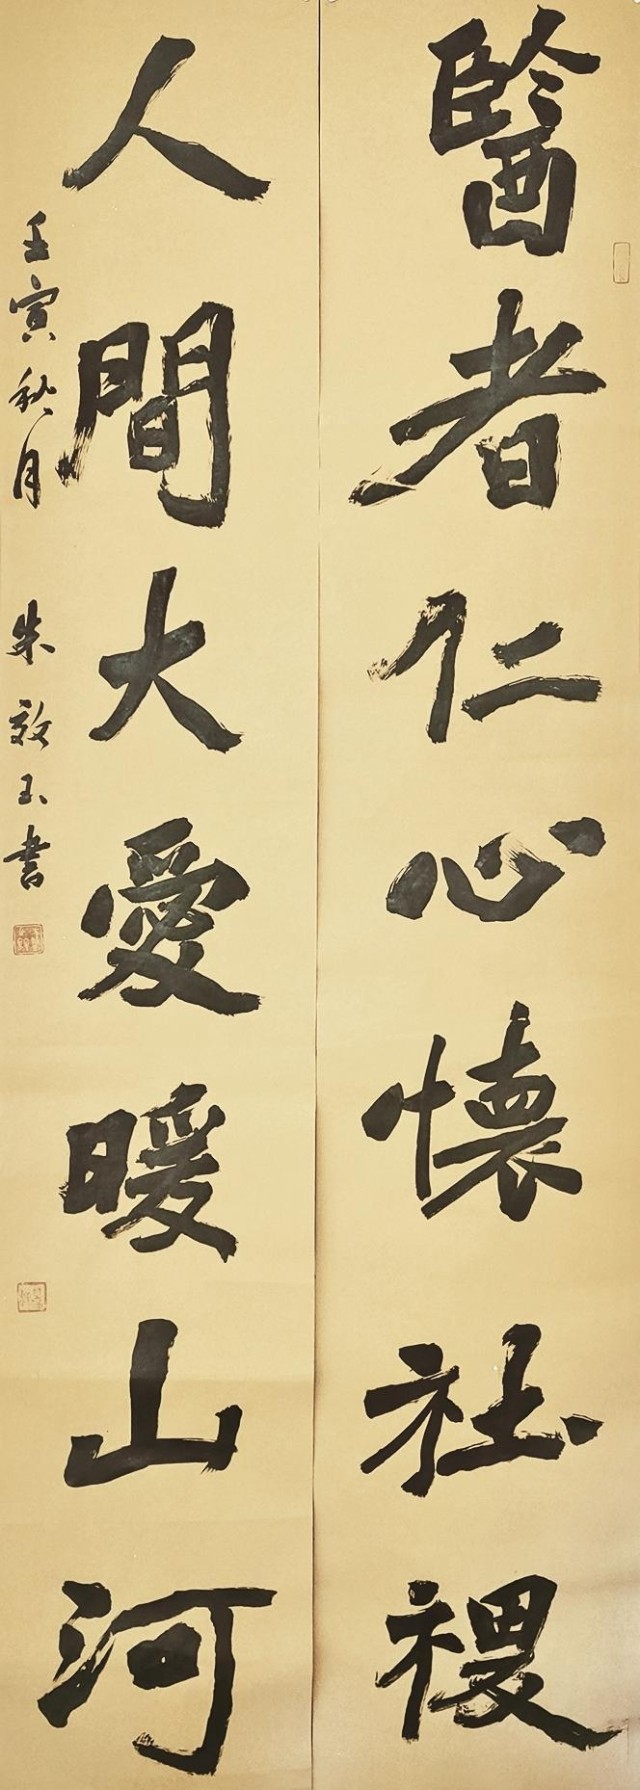 醫者仁心懷社稷
人間大愛暖山河
壬寅秋月 朱效玉書